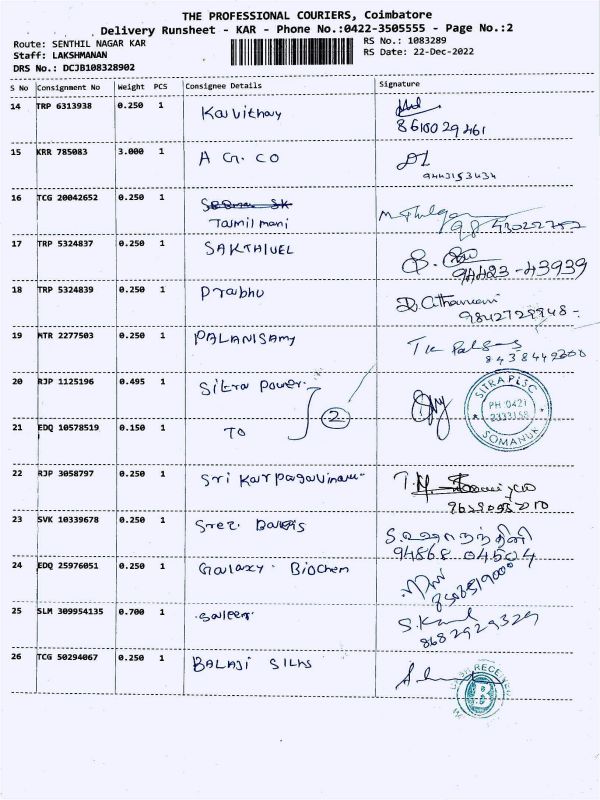 THE PROFESSIONAL COURIERS, Coimbatore
Delivery Runsheet - KAR - Phone No.:0422-3505555 - Page No.:2
Route: SENTHIL NAGAR KAR RS No.: 1083289
Staff: LAKSHMANAN RS Date: 22-Dec-2022
DRS No.: DCJB108328902
S No Consignment No Weight PCS Consignee Details Signature
14 TRP 6313938 0.250 1 Kavithay
8610029461
15 KRR 785083 3.000 1 A G. CO
9443153434
16 TCG 20042652 0.250 1
Tamilmani
17 TRP 5324837 0.250 1 SAKTHIVEL
94423-43939
18 TRP 5324839 0.250 1 Prabhu
9842729948-
19 MTR 2277503 0.250 1 PALANISAMY
8438449200
20 RJP 1125196 0.495 1 Sitra Power.
SITRAPLSC
PH:0421
2333158
SOMANUR
2
21 EDQ 10578519 0.150 1 TO
22 RJP 3058797 0.250 1 Sri Karpagavinam"
23 SVK 10339678 0.250 1 Sree
94868 04504
24 EDQ 25976051 0.250 1 Galaxy. Biochem
25 SLM 309954135 0.700 1 Saleem
S.
8682929329
26 TCG 50294067 0.250 1 BALAJI SILKS
B